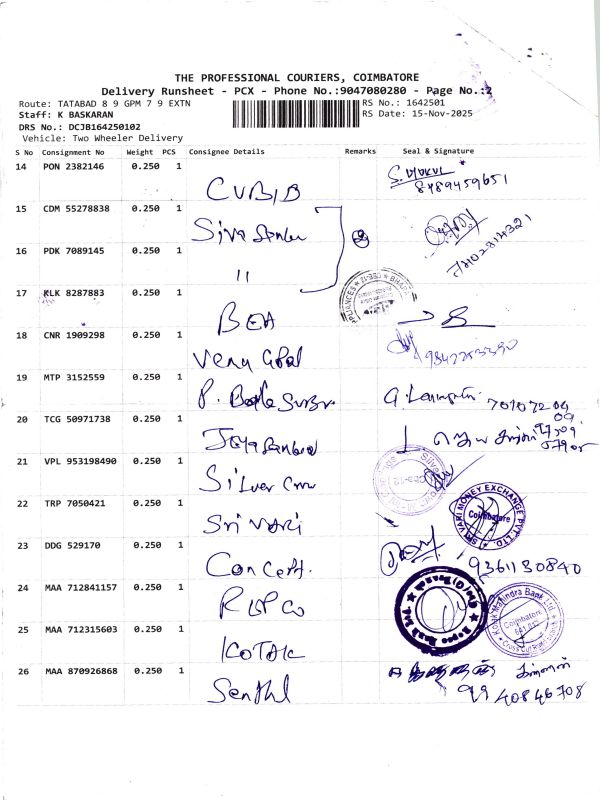 THE PROFESSIONAL COURIERS, COIMBATORE
Delivery Runsheet - PCX - Phone No.:9047080280 - Page No.:2
Route: TATABAD 8 9 GPM 7 9 EXTN
RS No.: 1642501
Staff: K BASKARAN
RS Date: 15-Nov-2025
DRS No.: DCJB164250102
Vehicle: Two Wheeler Delivery
S No Consignment No Weight PCS Consignee Details Remarks Seal & Signature
14 PON 2382146 0.250 1 CUBIB
8489459651
15 CDM 55278838 0.250 1 Siva
16 PDK 7089145 0.250 1 "
17 KLK 8287883 0.250 1 BEA
18 CNR 1909298 0.250 1 Venu Gopal
9842253390
19 MTP 3152559 0.250 1 P.
20 TCG 50971738 0.250 1
21 VPL 953198490 0.250 1 Silver
22 TRP 7050421 0.250 1 Sri VARI
SRI VARI MONEY EXCHANGE PVT LTD.
Coimbatore
23 DDG 529170 0.250 1 Concert.
9361130840
24 MAA 712841157 0.250 1
25 MAA 712315603 0.250 1 KOTAK
Kotak Mahindra Bank Ltd.
Coimbatore
26 MAA 870926868 0.250 1 Senthil
9940846708